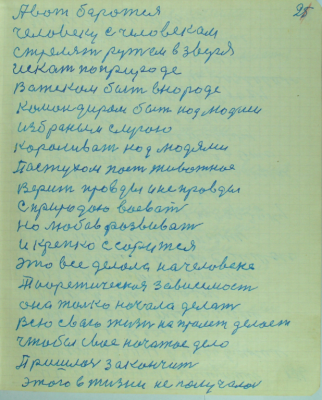 25
А вот баротся
человеку с человекам
стрелят ружем в зверя
искат по природе
Важеком быт в народе
Командирам быт над людми
избраным слугою
Караливат над людями
Пастухом паст животное
Верит правды и не правды
С природаю воеват
Но любов развиват
и крепко ссорится
это все делала на человека
Теоретическая зависимост
она толко начала делат
Всю сваю жизн на правит делает
чтобы свое начатое дело
Пришлос закончит
этого в жизни не получалос